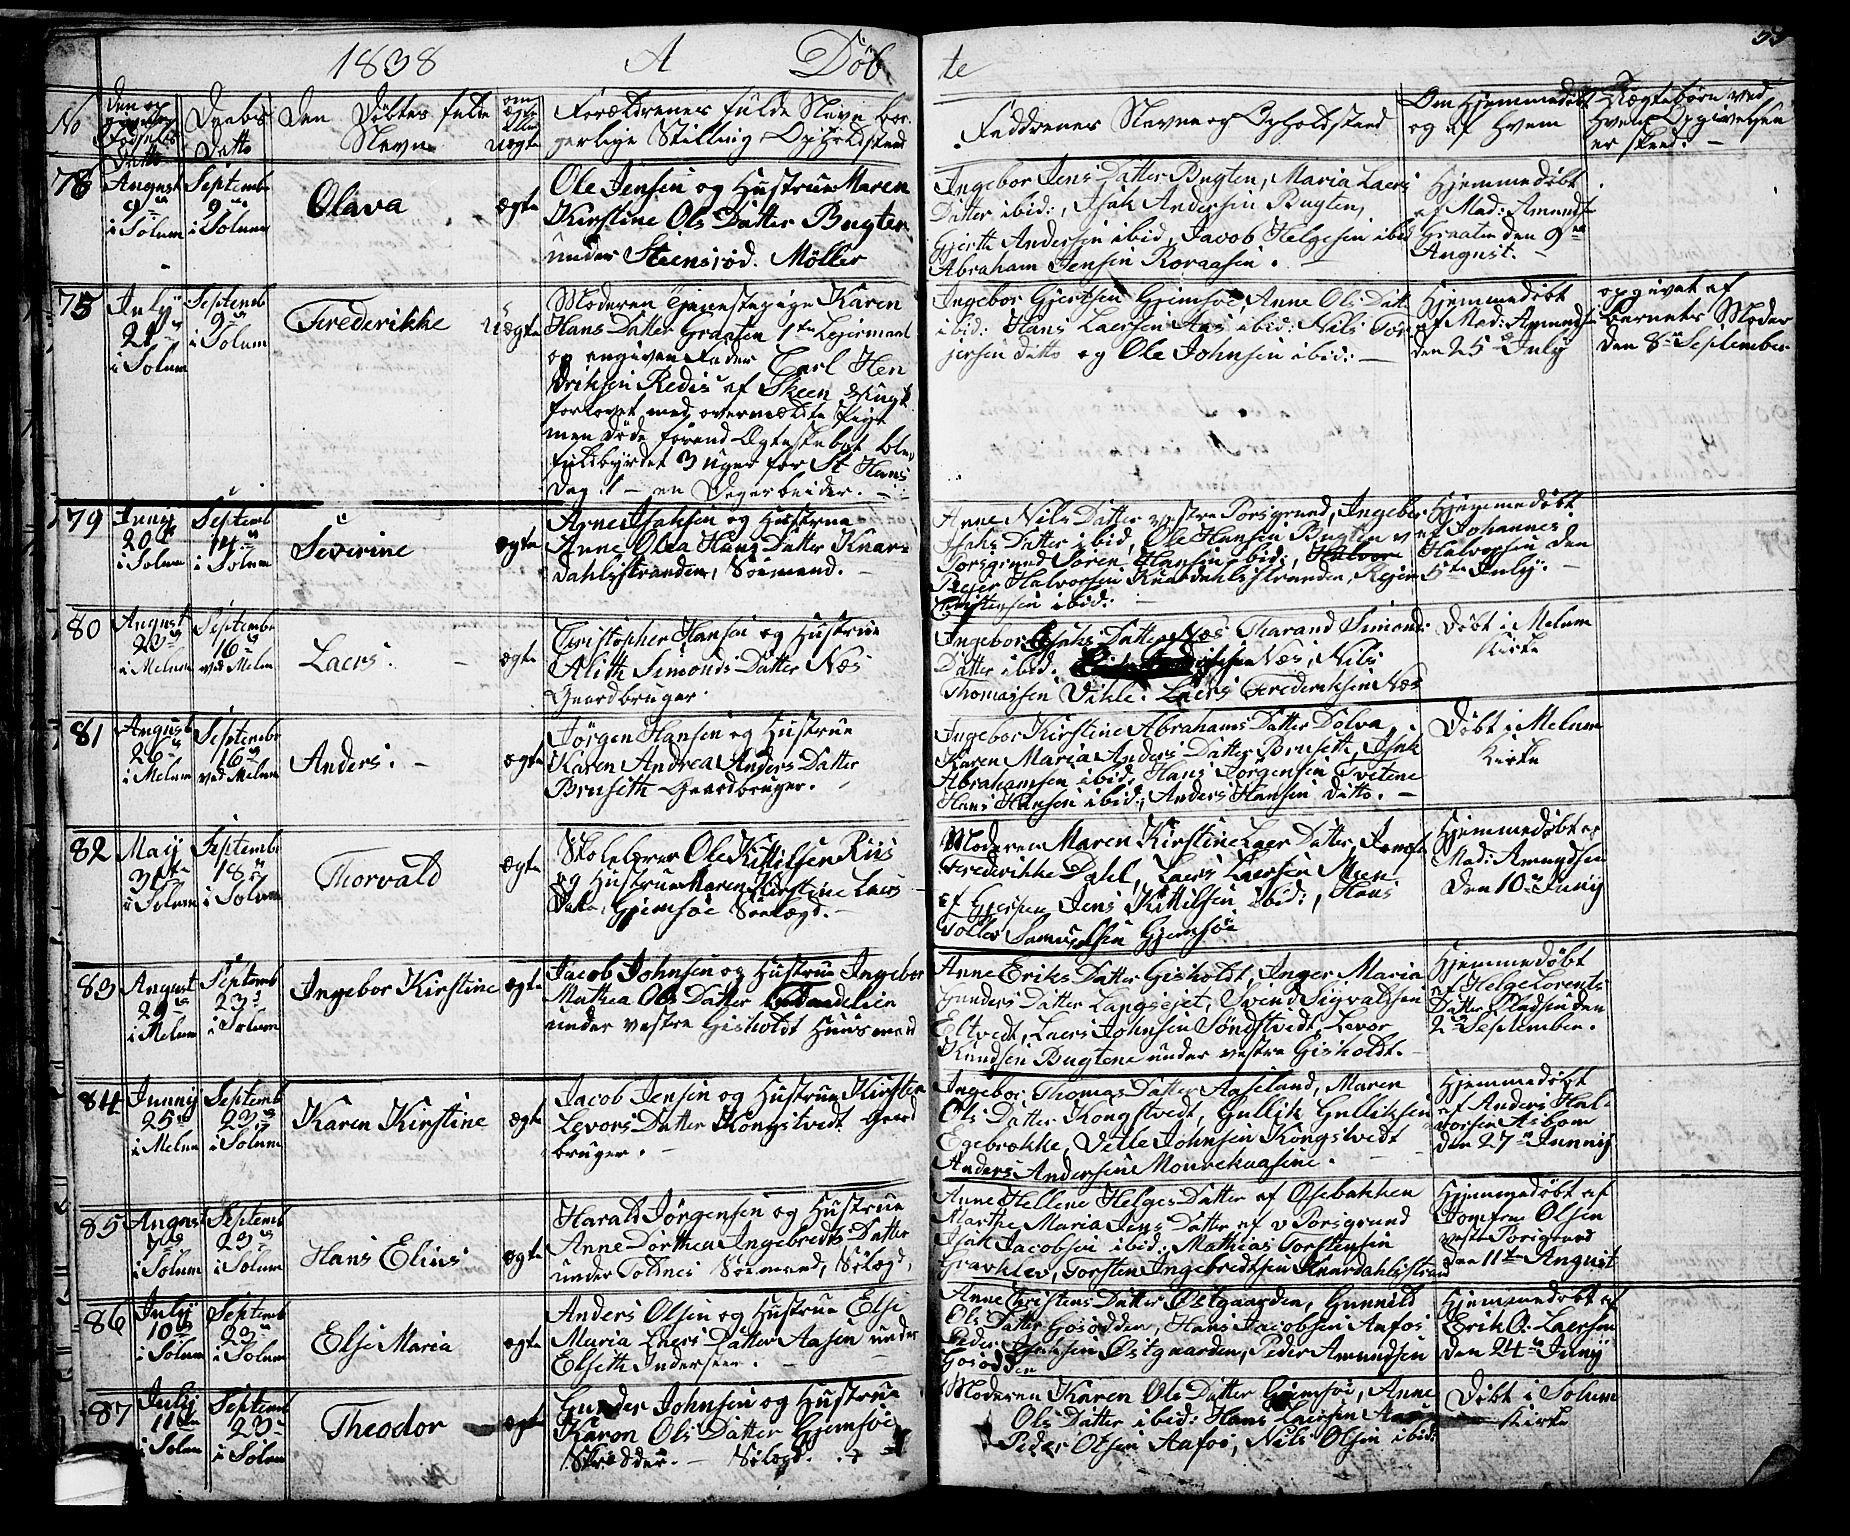 1838 A Døb te
No
Den Døbtes fulde
Navn
Forældrenes fulde Navne bor-
gerlige Stilling Opholdsted
Faddernes Navne og Opholdsted
Om Hjemmedøbt
og af Hvem
78
August
9
i Solum
September
9
i Solum
Olava
ægte
Ole Jensen og Hustrue Maren
Kirstine Ols Datter Bugten
under Steensrød. Møller
Ingebor Jens Datter Bugten, Maria Laers
Datter ibid:, Isak Andersen Bugten,
Gjerth Andersen ibid, Jacob Helgesen ibid
Abraham Jensen Roraasen.
Hjemmedøbt
af Mad: Amund
Graaten den 9
August.
75
July
21
i Solum
Septemb
9
i Solum
Frederikke
Uægte
Moderen Tjenestepige Karen
Hans Datter Graaten 1te Leiermaal
og angiven Fader Carl Hen
driksen Redis af Skeen
forlovet med overmældte Pige
men døde førend Ægteskabet blev
fuldbyrdet 3 uger før St Hans
Dag. - en Dagarbeider.
Ingebor Gjertsen Gjemsøe, Anne Ols Datt.
ibid: Hans Laersen Aas ibid: Nils Tor
jersen ditto og Ole Johnsen ibid:
Hjemmedøbt
af Mad: Amunds
den 25 July
opgivet af
barnets Moder
den 8 September
79
Juny
20
i Solum
Septemb
14
i Solum
Severine
ægte
Arne Isaksen og Hustrue
Anne Olea Hans Datter Knar-
dahlsstranden, Søemand.
Anne Nils Datter vestre Porsgrund, Ingebor
Isaks Datter ibid, Ole Hansen Bugten v
Porsgrund Søren Hansen ibid:, Halvor
Peder Halvorsen Knardahlsstranden,
Christensen ibid:
Hjemmedøbt
af Johannes
Halvorsen den
5te July.
80
August
23
i Melum
Septembr
16
ved Melum
Laers.
ægte
Christopher Hansen og Hustrue
Alith Simonds Datter Næs
Gaardbruger.
Ingebor Isaks Datter Næs Tharand Simonds
Datter ibid. Næs, Nils
Thomassen Vikle. Laers Frederiksen Næs
Døbt i Melum
Kirke
81
August
26
i Melum
Septembr
16
ved Melum
Anders.
ægte
Jørgen Hansen og Hustrue
Karen Andrea Anders Datter
Bruseth Gaardbruger.
Ingebor Kirstine Abrahams Datter Dolva
Karen Maria Anders Datter Bruseth, Isak
Abrahamsen ibid, Hans Jørgensen Tvitene
Hans Hansen ibid:, Anders Hansen ditto.
Døbt i Melum
Kirke
82
Maij
31te
i Solum
Septembr
18
i Solum
Thorvald
ægte
Skolelærer Ole Kittilsen Riis
og Hustrue Maren Kirstine Laers
Datter, Gjemsøe Sølægd.
Moderen Maren Kirstine Laers Datter, Jomfr
Frederikke Dahl, Laers Laersen Moen
af Gjerpen Jens Kittilsen ibid:, Hans
Tollev Samuelsen Gjemsøe
Hjemmedøbt af
Mad: Amundsen
den 10 Juny
83
August
29
i Melum
Septemb
23
i Solum
Ingebor Kirstine
ægte
Jacob Johnsen og Hustrue Ingebor
Mathea Ols Datter
under vestre Gisholdt Huusmand
Anne Eriks Datter Gisholdt, Inger Maria
Gunders Datter Langsejet, Svend Sigvaldsen
Eltvedt, Laers Johnsen Søndstvedt, Levor
Knudsen Bugtene under vestre Gisholdt.
Hjemmedøbt
af Helge Lorents
Datter Pladsen den
2 September.
84
Junny
25
i Melum
Septemb
23
i Solum
Karen Kirstine
ægte
Jacob Jensen og Hustrue Kirsten
Levors Datter Kongstvedt Gaard
bruger.
Ingebor Thomas Datter Aaseland, Maren
Ols Datter Kongstvedt, Gullik Gulliksen
Egebrække, Detle Johnsen Kongstvedt
Anders Andersen Mourekaasene.
Hjemmedøbt
af Anders Hal-
vorsen Asbom
den 27 Junny
85
August
i Solum
Septemb
23
i Solum
Hans Elius
ægte
Harald Jørgensen og Hustrue
Anne Dorthea Ingebredts Datter
under Tollnes Søemand, Sølægd,
Anne Hellene Helges Datter af Osebakken
Marthe Maria Jens Datter af v Porsgrund
Isak Jacobsen ibid:, Mathias Torstensen
Gravklev, Torsten Ingebredtsen Knardahlsstrand
Hjemmedøbt af
Jomfrue Olsen
vestre Porsgrund
den 11te August
86
July
10
i Solum
Septemb
23
i Solum
Else Maria
ægte
Anders Olsen og Hustrue Else
Maria Laers Datter Aasen under
Elseth Inderst.
Anne Christens Datter Østgaarden, Gunnild
Ols Datter Gosødden, Hans Jacobsen Aafos
Peder Isaksen Østgaarden, Peder Amundsen
Gosødden
Hjemmedøbt af
Erik O. Laersen
den 24 Juny
87
July
11te
i Solum
Septemb
23
i Solum
Theodor
ægte
Gunder Johnsen og Hustrue
Karen Ols Datter Gjemsøe
Skrædder. Sølægd.
Moderen Karen Ols Datter Gjemsøe, Anne
Ols Datter ibid: Hans Laersen Aas
Peder Olsen Aafos, Nils Olsen ibid:
Døbt i Solum
Kirke